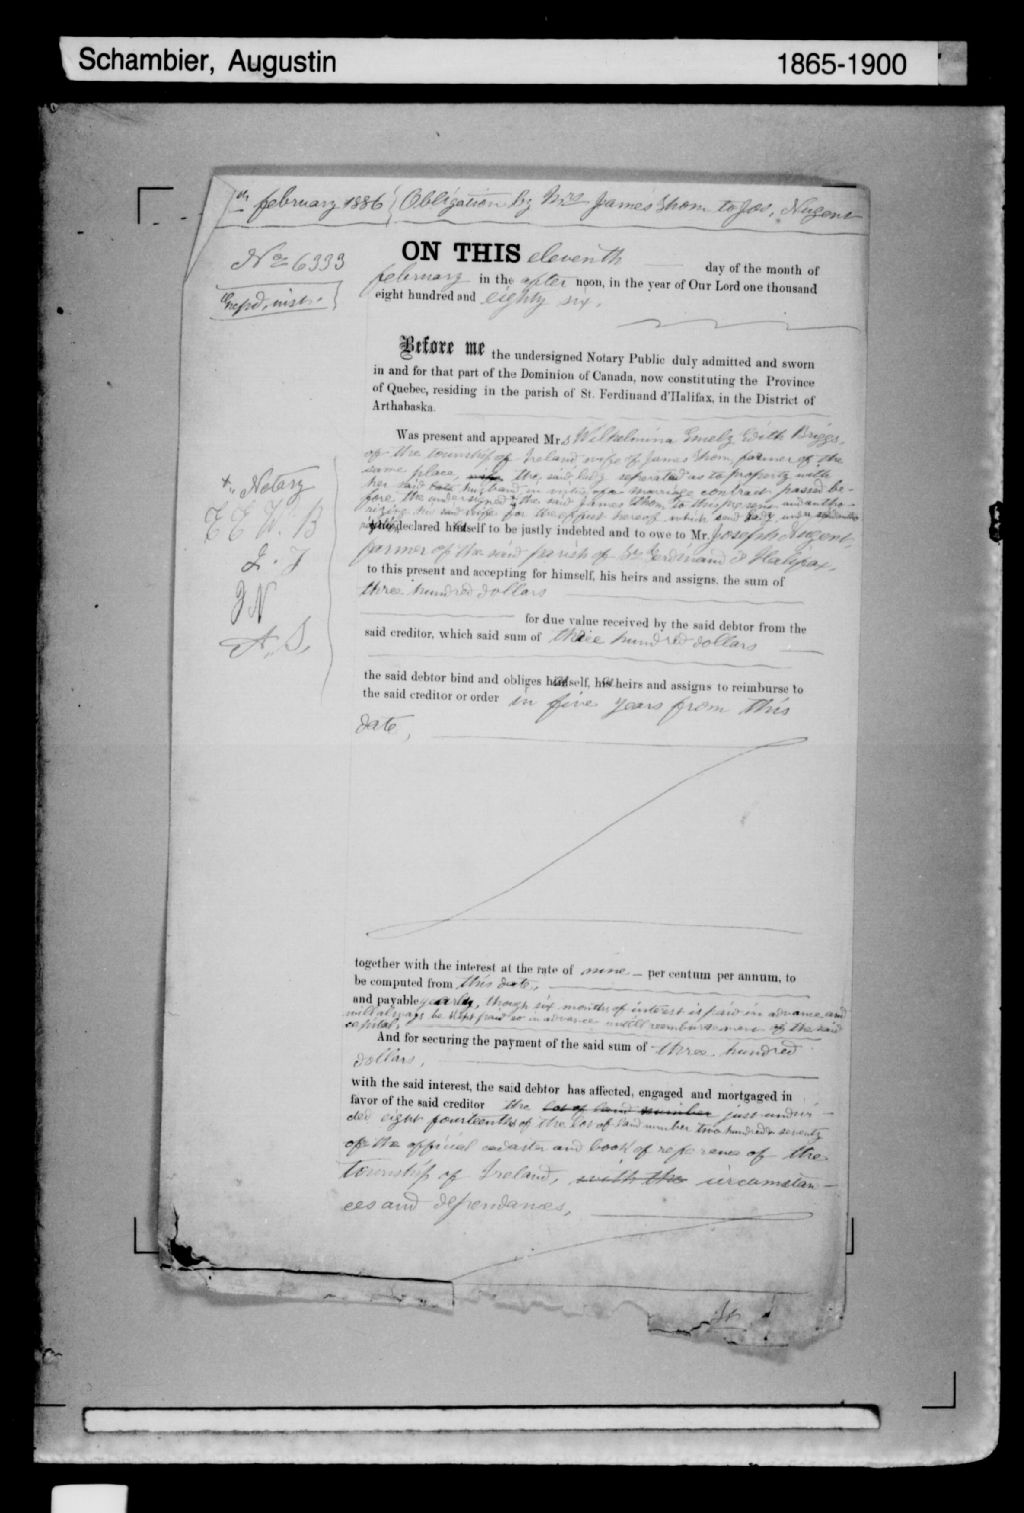 Schambier, Augustin 1865-1900
th february 1886 Obligation by Mrs James Thom to Jos. Nugent
No 6333
ON THIS eleventh day of the month of
february in the after noon, in the year of Our Lord one thousand
eight hundred and eighty six.
Before me the undersigned Notary Public duly admitted and sworn
in and for that part of the Dominion of Canada, now constituting the Province
of Quebec, residing in the parish of St. Ferdinand d'Halifax, in the District of
Arthabaska.
Was present and appeared Mrs Wilhelmina Emely Edith Briggs,
of the township of Ireland wife of James Thom, farmer of the
same place, wife the said lady separated as to property with
her said husband in virtue of a marriage contract passed be-
fore the undersigned & the said James Thom to this present and autho-
rizing his said wife for the effect hereof which said lady under
declared herself to be justly indebted and to owe to Mr. Joseph Nugent,
farmer of the said parish of St Ferdinand d'Halifax,
to this present and accepting for himself, his heirs and assigns, the sum of
three hundred dollars
for due value received by the said debtor from the
said creditor, which said sum of three hundred dollars
the said debtor bind and obliges herself, her heirs and assigns to reimburse to
the said creditor or order in five years from this
date,
+ Notary
E E W. B
J. T
J N
A. S.
together with the interest at the rate of nine per centum per annum, to
be computed from this date,
and payable yearly, though six months of interest is paid in advance and
will always be kept paid so in advance untill reimbursement of the said
capital,
And for securing the payment of the said sum of three hundred
dollars,
with the said interest, the said debtor has affected, engaged and mortgaged in
favor of the said creditor the lot of land number just undivi-
ded eight fourteenths of the lot of land number two hundred & seventy
of the official cadaster and book of reference of the
township of Ireland, with the circumstan-
ces and dependances,